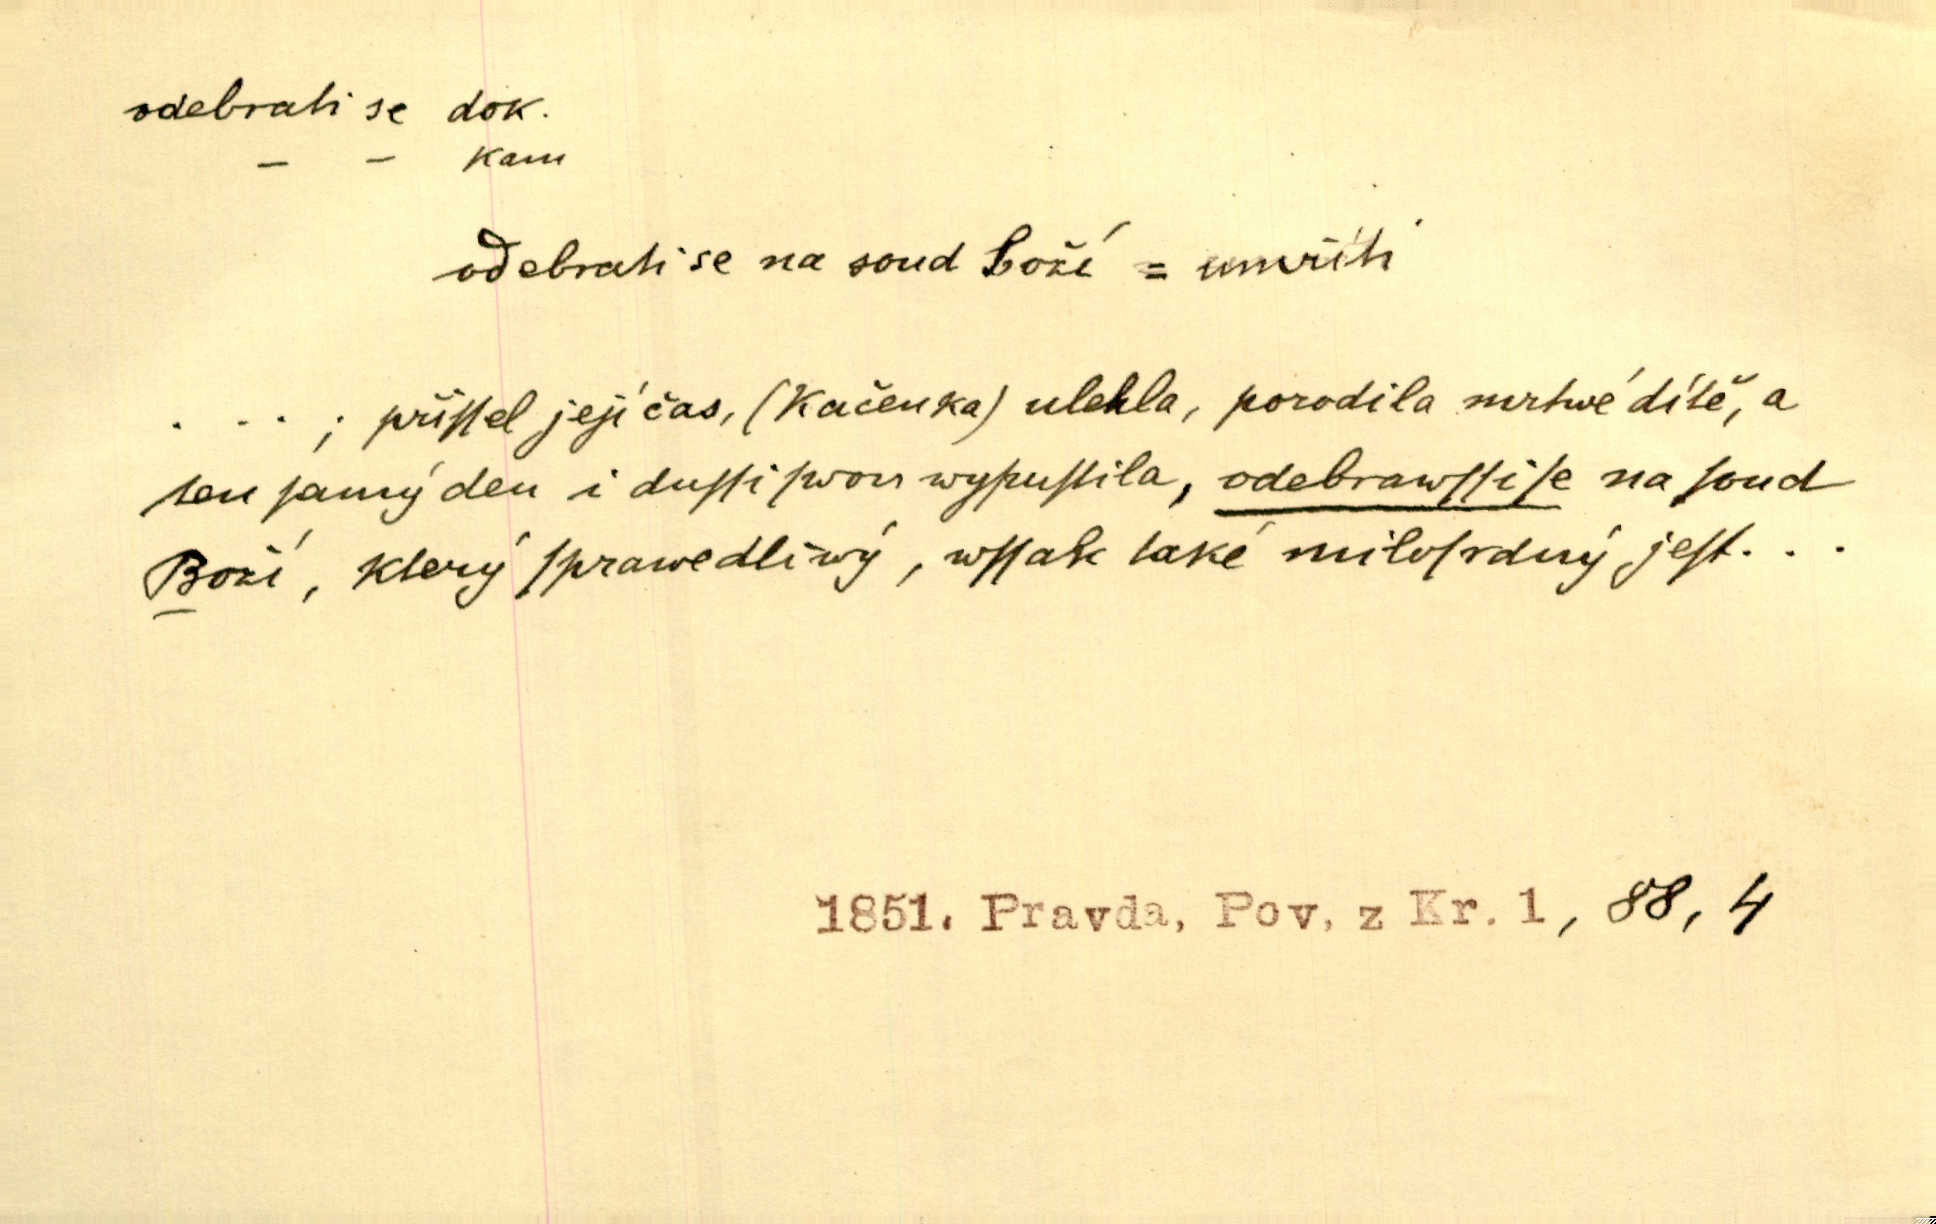 odebrati se dok.
– – kam
odebrati se na soud boží = umříti
. . . ; přiſſel její čas, (Kačenka) ulehla, porodila mrtwé dítě, a
ten ſamý den i duſſi ſwou wypuſtila, odebrawſſi ſe na ſoud
Boží, který ſprawedliwý, wſſak také miloſrdný jeſt. . .
1851. Pravda, Pov. z Kr. 1, 88, 4